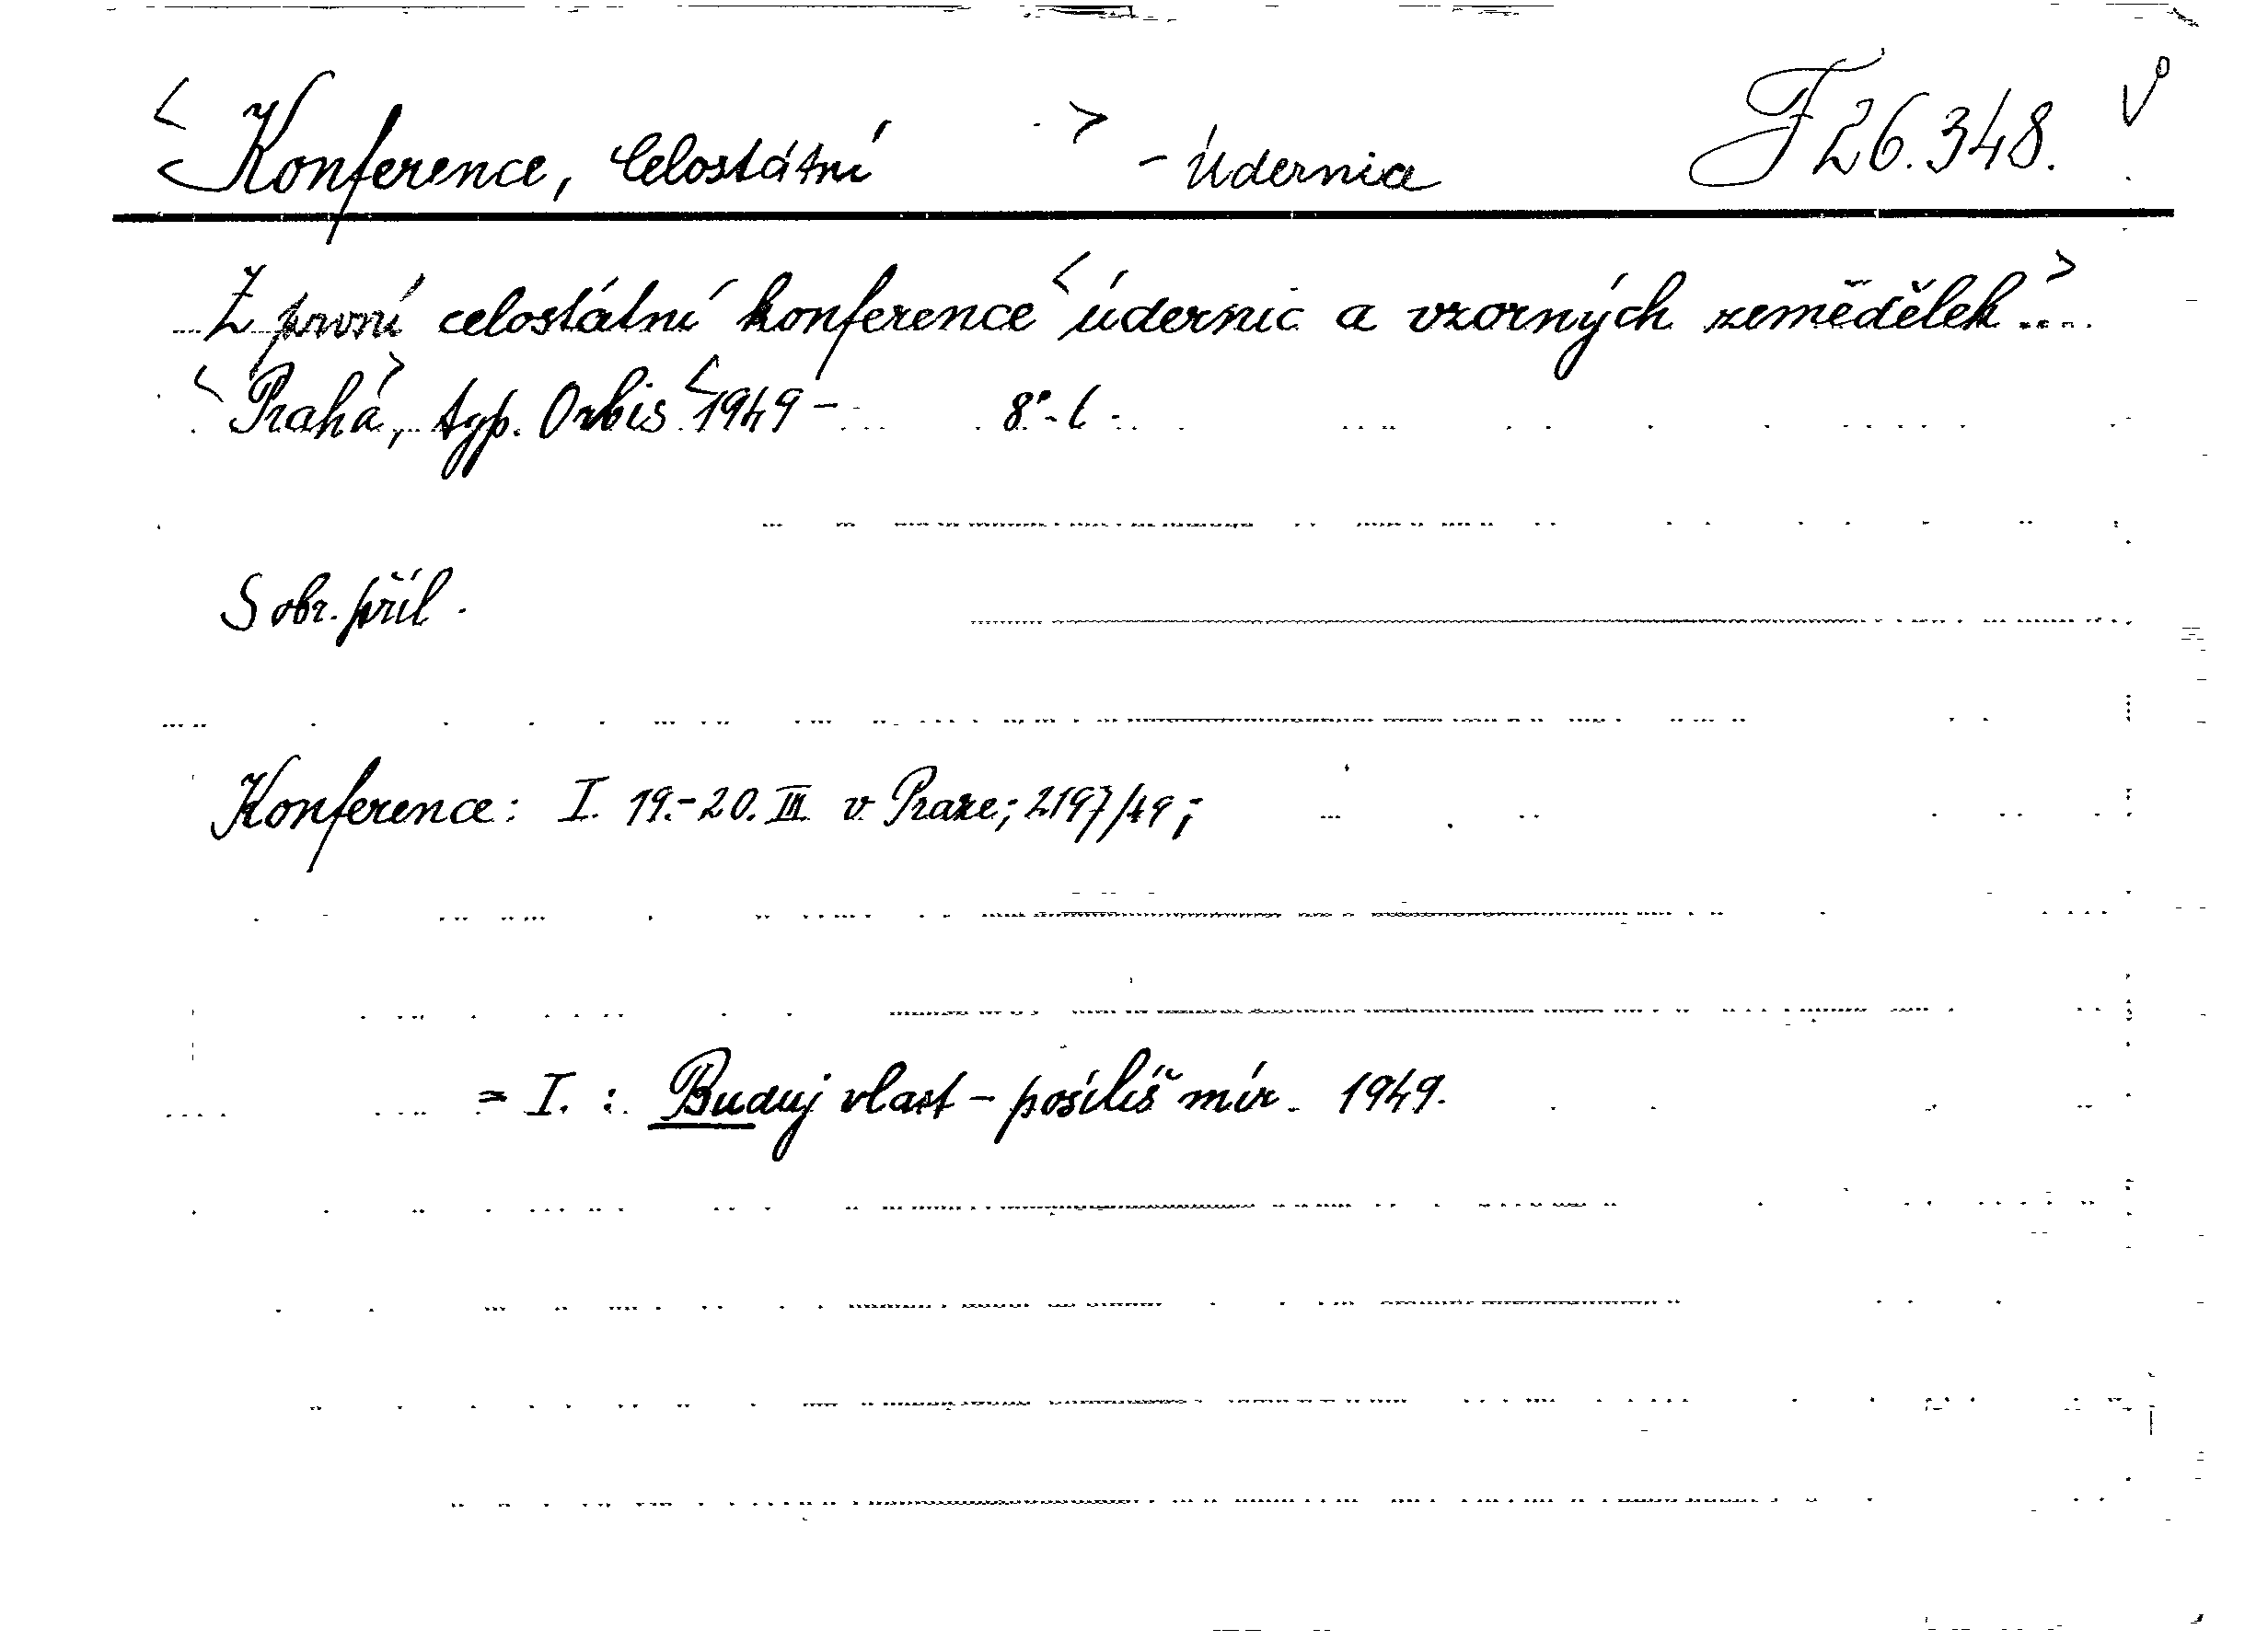 < Konference, Celostátní > - Údernia F 26.348.
Z první celostátní konference <údernic a vzorných zemědělek...>
<Praha>, typ. Orbis <1949 - 8° - (-
S obr. příl.
Konference: I. 19.-20. III v Praze; 2197/49;
= I. : Buduj vlast - posílíš mír. 1949.